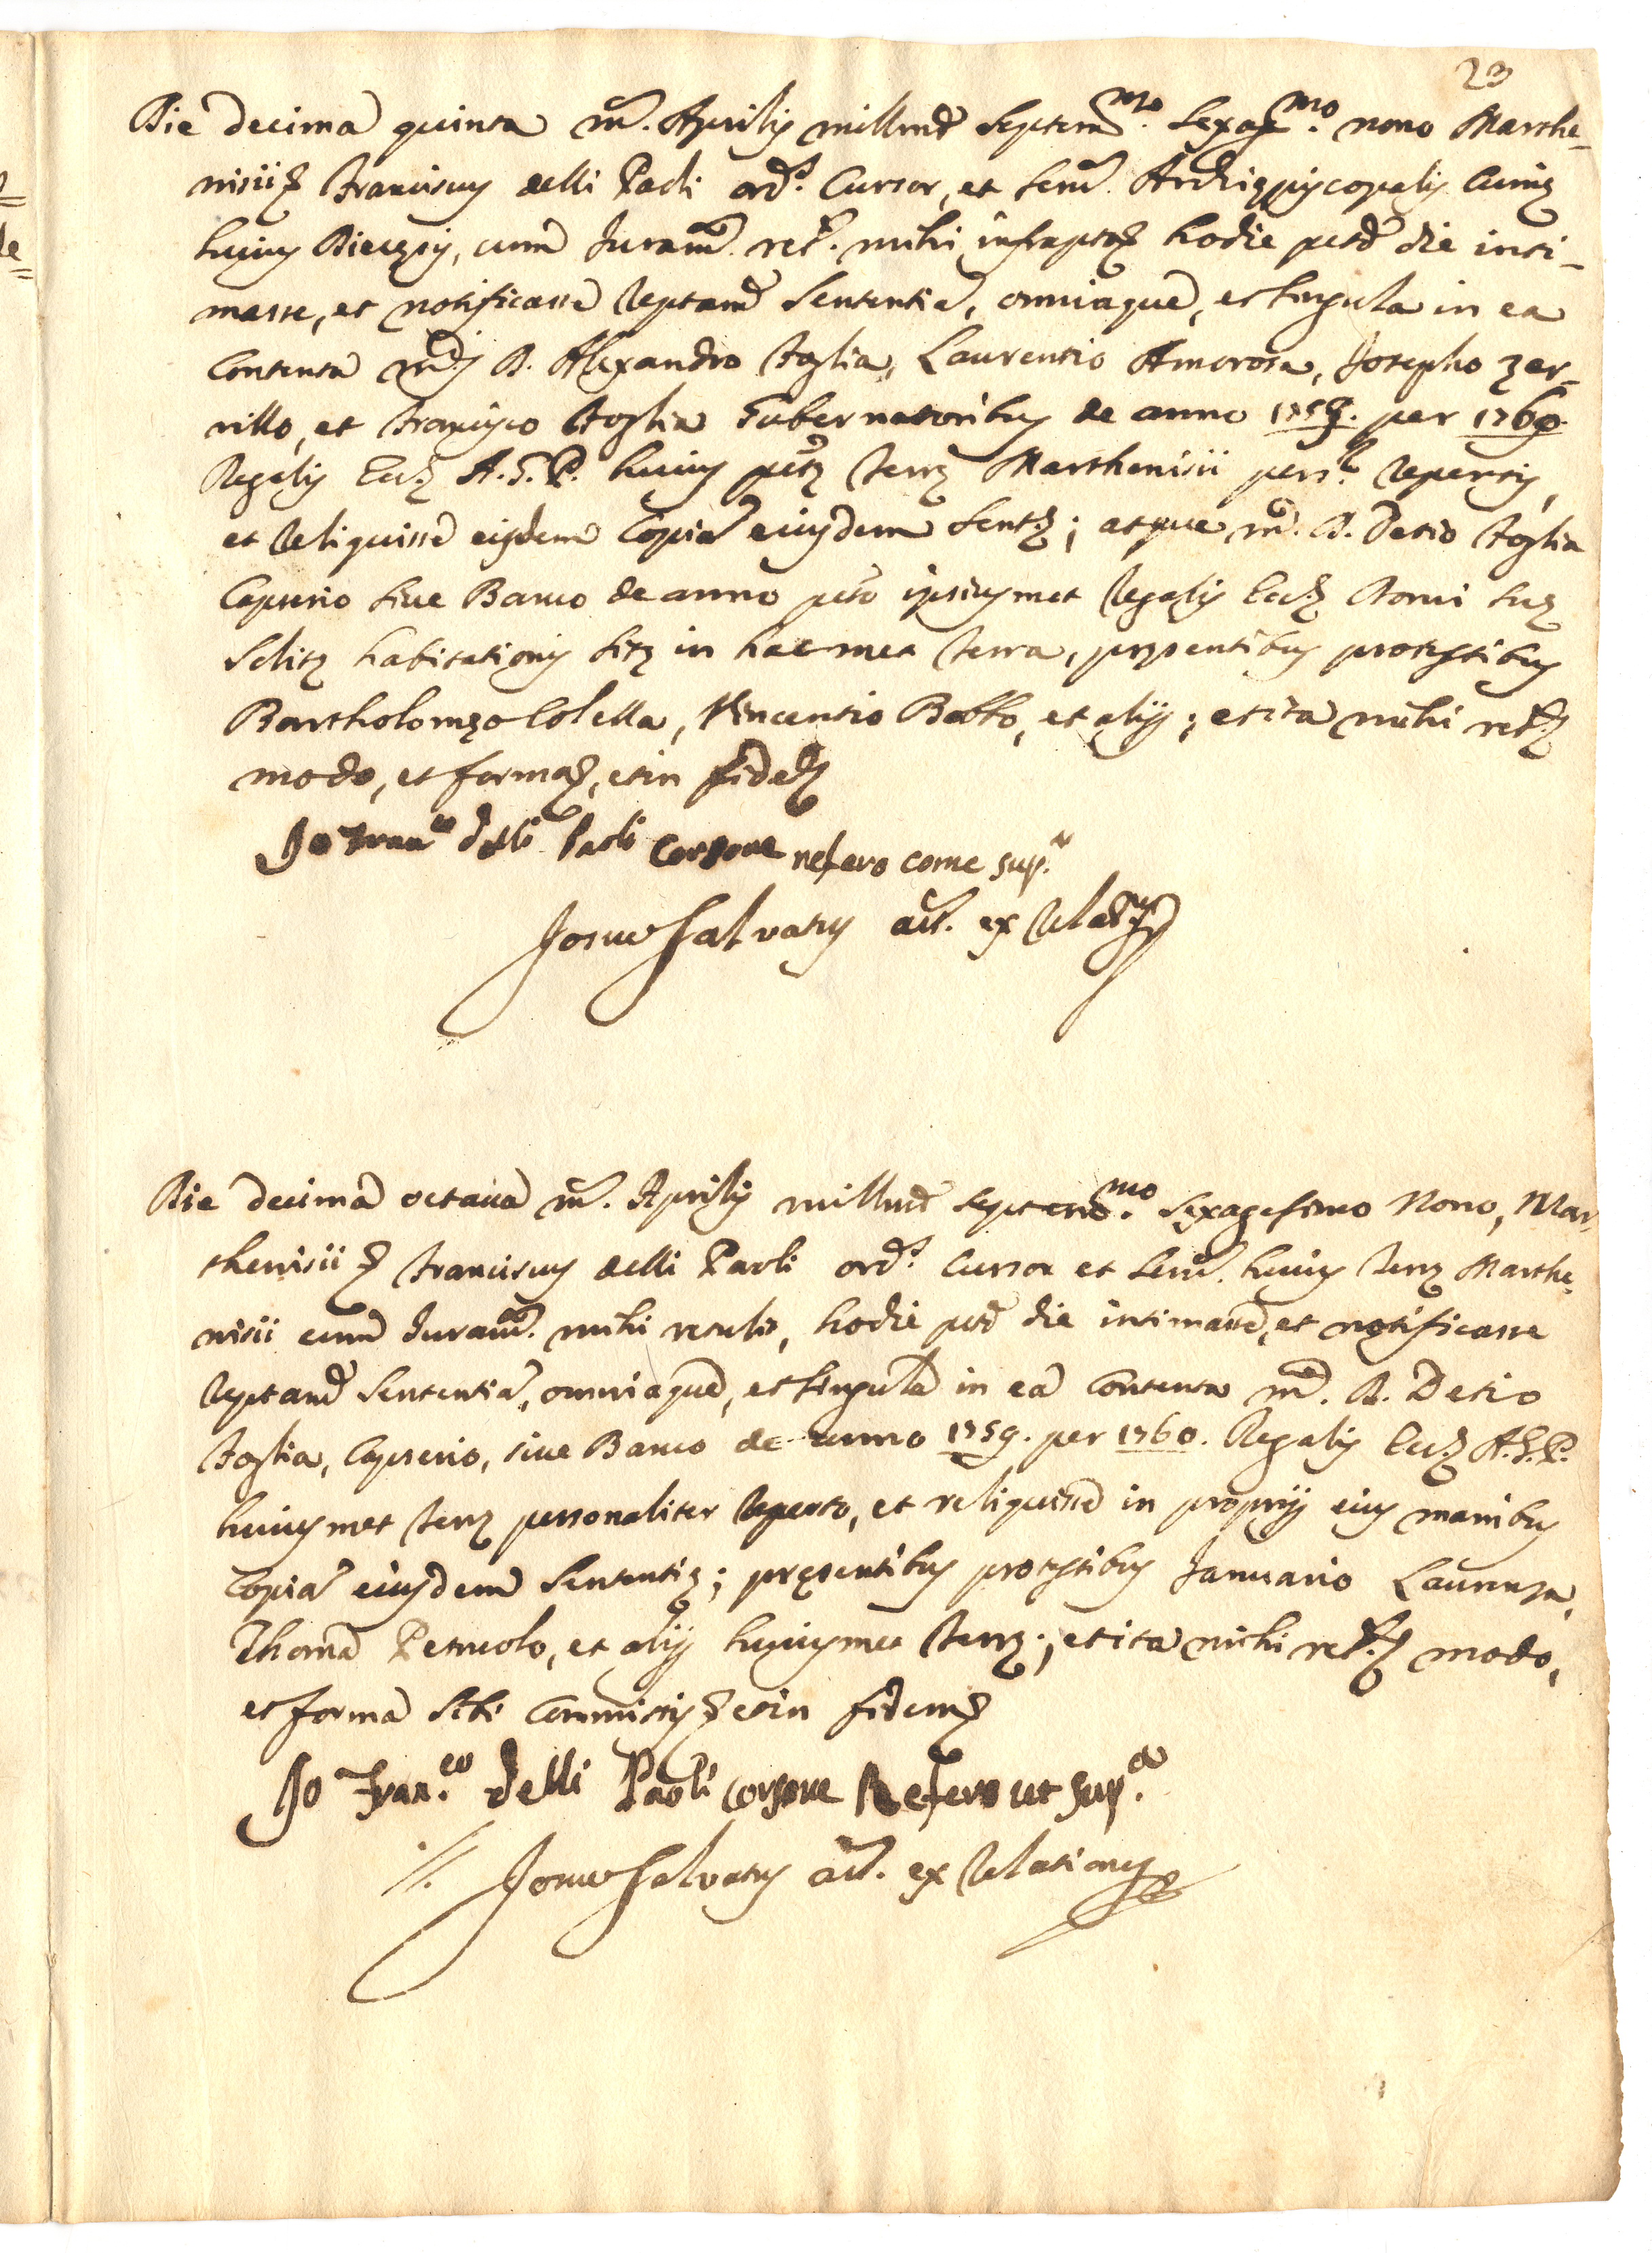 23
Die decima quinta m. Aprilis millmo septemmo. sexagmo. nono Marthe-
nisii Franciscus delli Paoli ord.s Cursor, et serv. Archiepiscopalis Curiæ
huius Diecesis, cum Juram. ret. mihi infraptо hodie ptto die inti-
masse, et notificasse reptam Sententia, omniaque, et singula in ea
Contenta m.ci D. Alexandro Foglia, Laurentio Amorosa, Josepho Zar-
rillo, et Francisco Foglia Gubernatoribus de anno 1759. per 1760.
Regalis Eccl.æ A.G.P. huius pttæ Terræ Marthenisii pers.r repertis,
et reliquisse eisdem Copia eiusdem Sent.æ; atque m. D. Decio Foglia
Capserio sive Banco de anno ptto ipsiusmet Regalis Eccl.æ Domi suæ
Solitæ habitationis sitæ in hac met Terra, præsentibus pro testibus
Bartholomeo Colella, Vincentio Bobbo, et aliis; et ita mihi ret.
modo, et forma, et in fidem
Io Franco delli Paoli Corsore refero come sup.a
Josue Salvatus act. ex relat
Die decima octava m. Aprilis millmo septemmo. sexagesimo Nono, Mar-
thenisii Franciscus delli Paoli ord.s Cursor et serv. huius Terræ Marthe-
nisii cum Juram. mihi retulit, hodie ptto die intimasse, et notificasse
reptam Sententia, omniaque, et singula in ea Contenta m. D. Decio
Foglia, Capserio, sive Banco de anno 1759. per 1760. Regalis Eccl.æ A.G.P.
huiusmet Terræ personaliter reperto, et reliquisse in propriis eius manibus
Copia eiusdem Sententiæ; præsentibus pro testibus Januario
Thoma Petruolo, et aliis huiusmet Terræ; et ita mihi ret. modo,
et forma sibi Commissis et in fidem
Io Fran.co delli Paoli corsore Refero ut sup.a
Josue Salvatus act. ex relationes